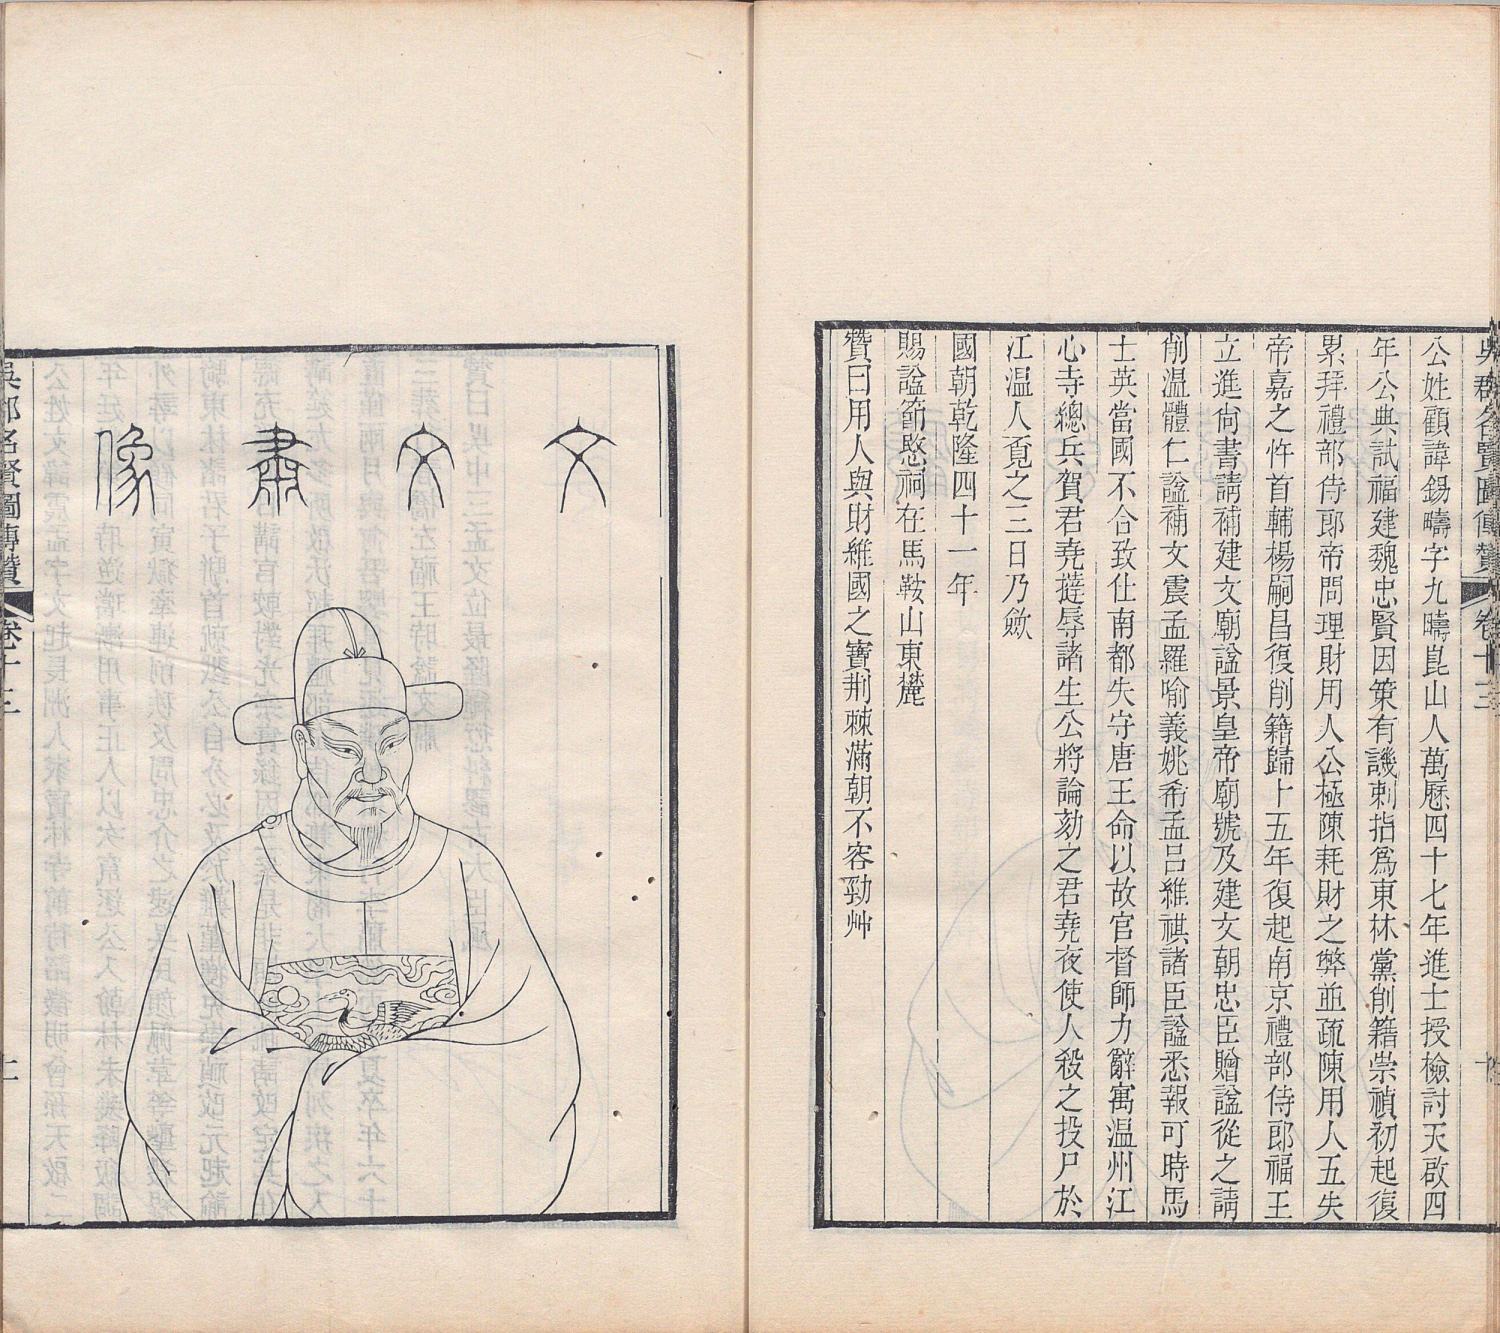 吳郡名賢圖傳贊 卷十三
公姓顧諱錫疇字九疇崑山人萬厯四十七年進士授檢討天啟四
年公典試福建魏忠賢因策有譏刺指爲東林黨削籍崇禎初起復
累拜禮部侍郎帝問理財用人公極陳耗財之弊並疏陳用人五失
帝嘉之忤首輔楊嗣昌復削籍歸十五年復起南京禮部侍郎福王
立進尚書請補建文廟諡景皇帝廟號及建文朝忠臣贈諡從之請
削溫體仁諡補文震孟羅喻義姚希孟呂維祺諸臣諡悉報可時馬
士英當國不合致仕南都失守唐王命以故官督師力辭寓温州江
心寺總兵賀君堯撻辱諸生公將論劾之君堯夜使人殺之投尸於
江温人覔之三日乃斂
國朝乾隆四十一年
賜諡節愍祠在馬鞍山東麓
贊曰用人與財維國之寶荆棘滿朝不容勁艸
文文肅像
吳郡名賢圖傳贊 卷十三